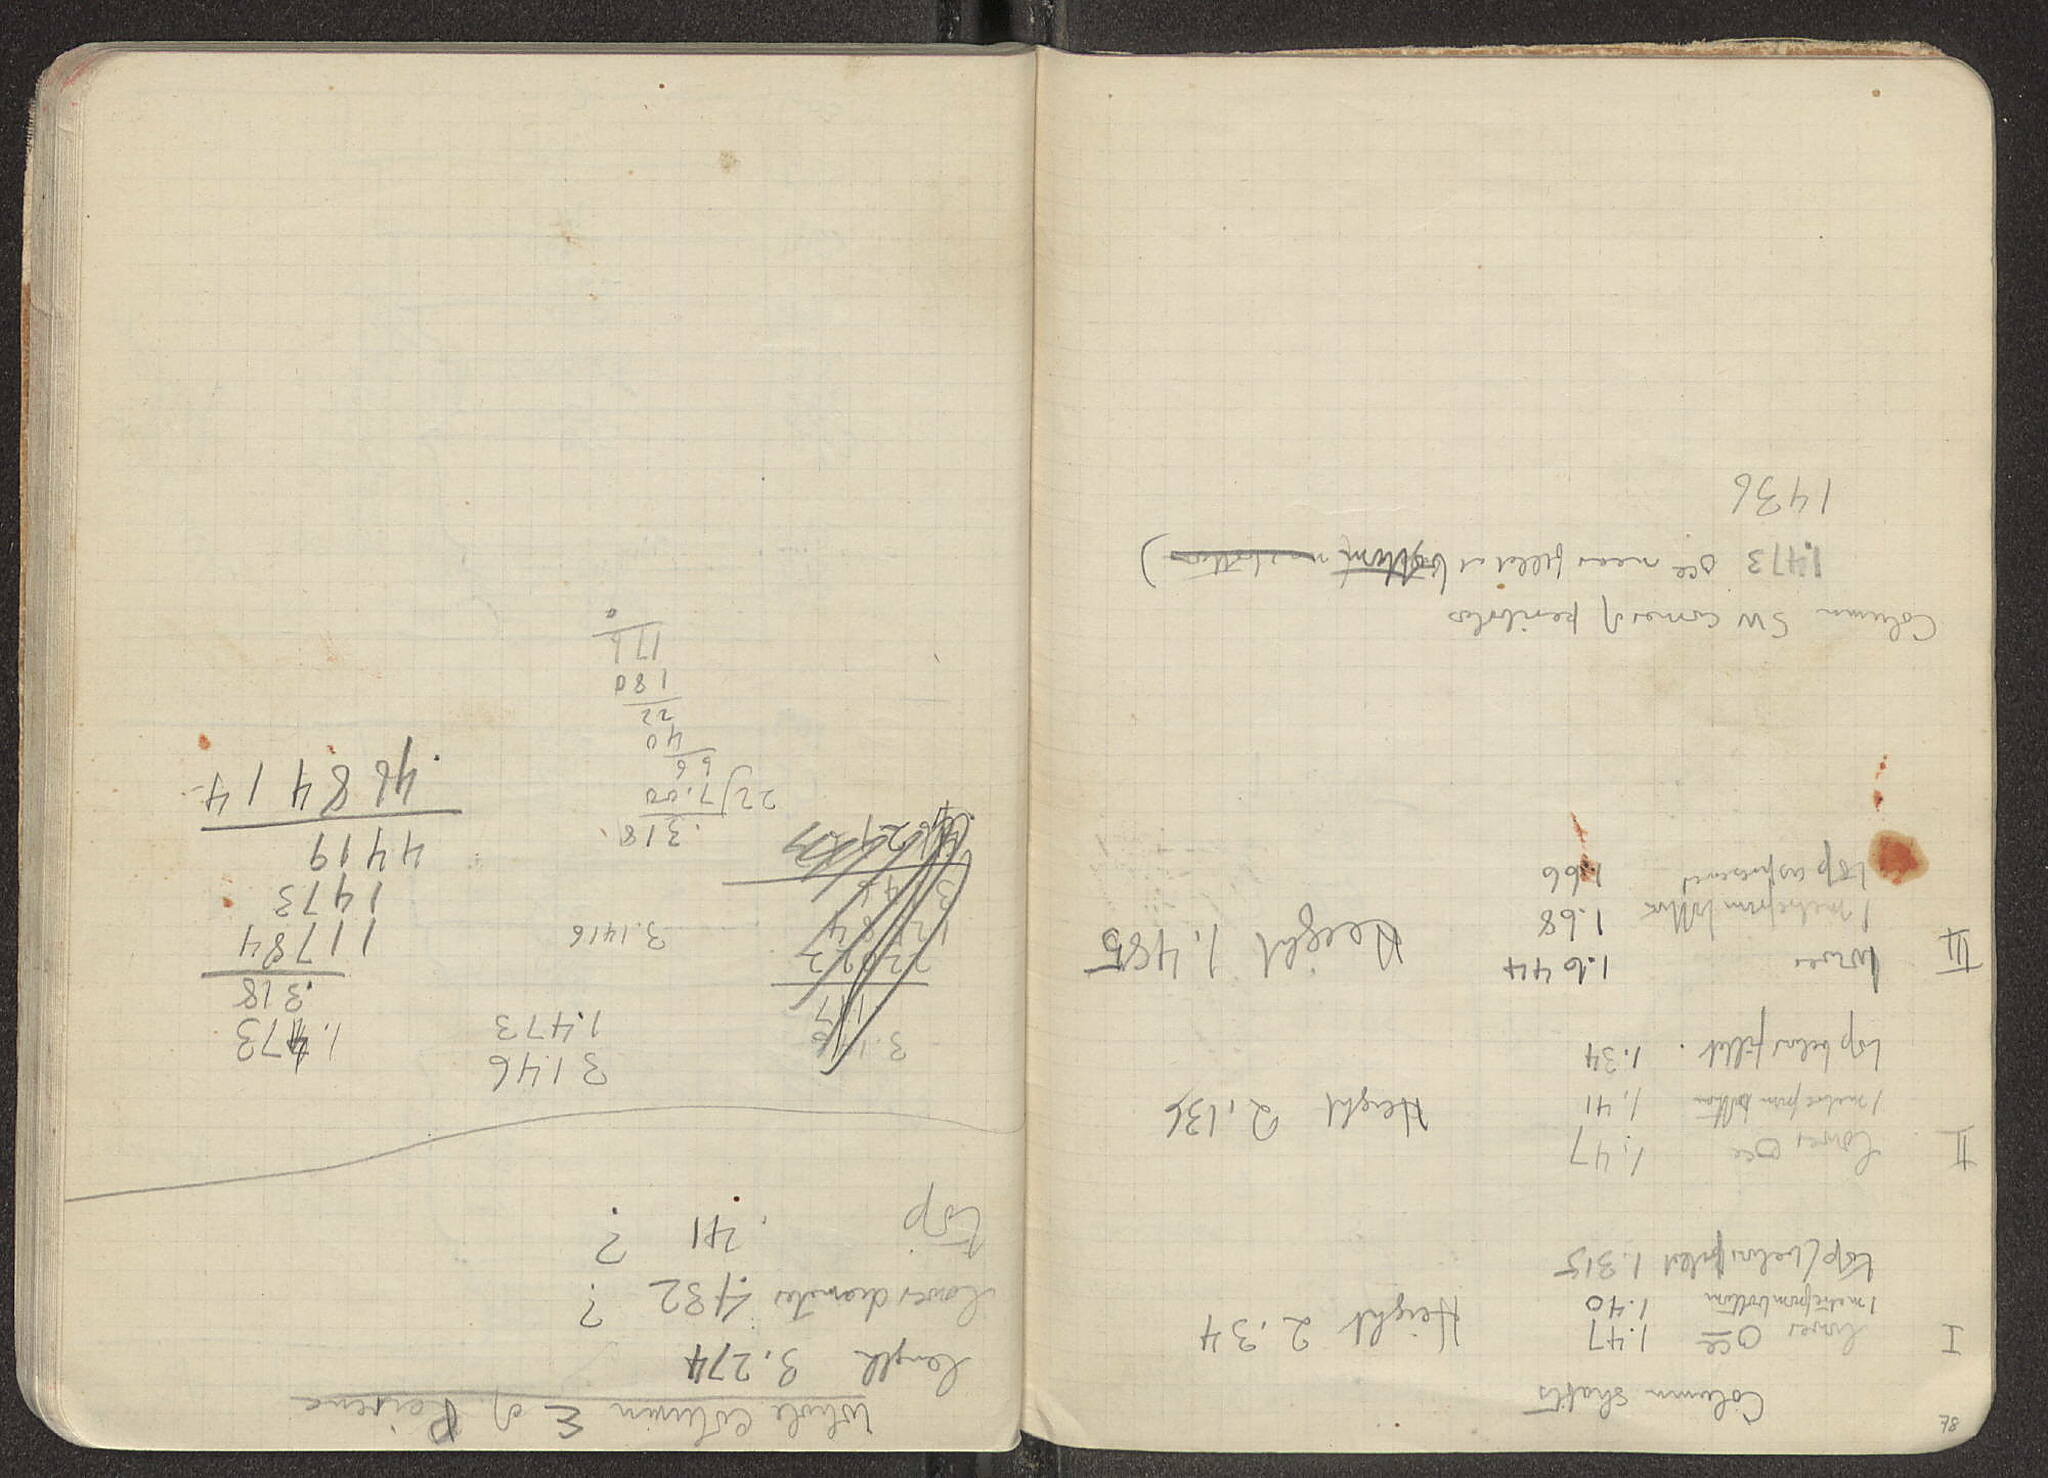 Column shafts
I lower Oce 1.47
1 metre from bottom 1.40
Height 2.34
top (below fillet 1.315
II lower Oce 1.47
1 metre from bottom 1.41
Height 2.136
top below fillet . 1.34
III lower 1.644
1 metre from bottom 1.68
Height 1.485
top as preserved 1.66
Column SW corner of peribolos
1.473 Oce near fillet at bottom
1436
Whole column E of Peirene
length 3.274
lower diameter .432 ?
top .41 ?
3.146
1.473
3.1416
1.473
.318
11784
1473
4419
.468414
.318
22)7.00
66
40
22
180
176